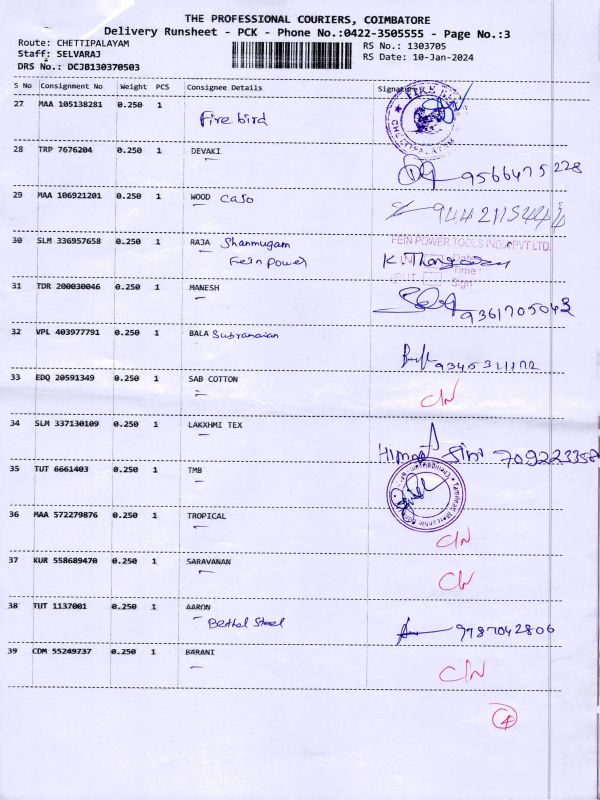 THE PROFESSIONAL COURIERS, COIMBATORE
Delivery Runsheet - PCK - Phone No.:0422-3505555 - Page No.:3
Route: CHETTIPALAYAM
RS No.: 1303705
Staff: SELVARAJ
RS Date: 10-Jan-2024
DRS No.: DCJB130370503
S No Consignment No Weight PCS Consignee Details Signature
27 MAA 105138281 0.250 1 Fire bird
28 TRP 7676204 0.250 1 DEVAKI
9566475228
29 MAA 106921201 0.250 1 WOOD caso
30 SLM 336957658 0.250 1 RAJA Shanmugam
FEIN POWER TOOLS IND. PVT LTD.
Fein power
Date
Time :
Sign
31 TDR 200030046 0.250 1 MANESH
9361705043
32 VPL 403977791 0.250 1 BALA Subramanian
33 EDQ 20591349 0.250 1 SAB COTTON
C/N
34 SLM 337130109 0.250 1 LAKXHMI TEX
35 TUT 6661403 0.250 1 TMB
36 MAA 572279876 0.250 1 TROPICAL
C/N
37 KUR 558689470 0.250 1 SARAVANAN
C/N
38 TUT 1137001 0.250 1 AARON
Bethel Steel
9787042806
39 CDM 55249737 0.250 1 BARANI
C/N
4